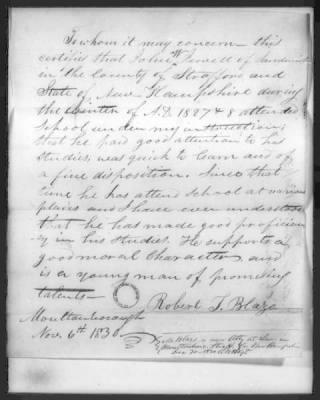 To whom it may concern - this
certifies that John W Jewell of Sandwich
in the County of Strafford and
State of New Hampshire during
the winter of A.D. 1827 & 8 attended
School under my instruction;
that he paid good attention to his
studies, was quick to learn and of
a fine disposition. Since that
time he has attend School at various
places and I have ever understood
that he has made good proficien
cy in his studies. He supports a
good moral character and
is a young man of promising
talents -
Robert T. Blazo
Moultonborough
Nov. 6th 1830
Mr Blazo is now Atty at Law in
Moultonboro, Straff. Co. New Hampshire